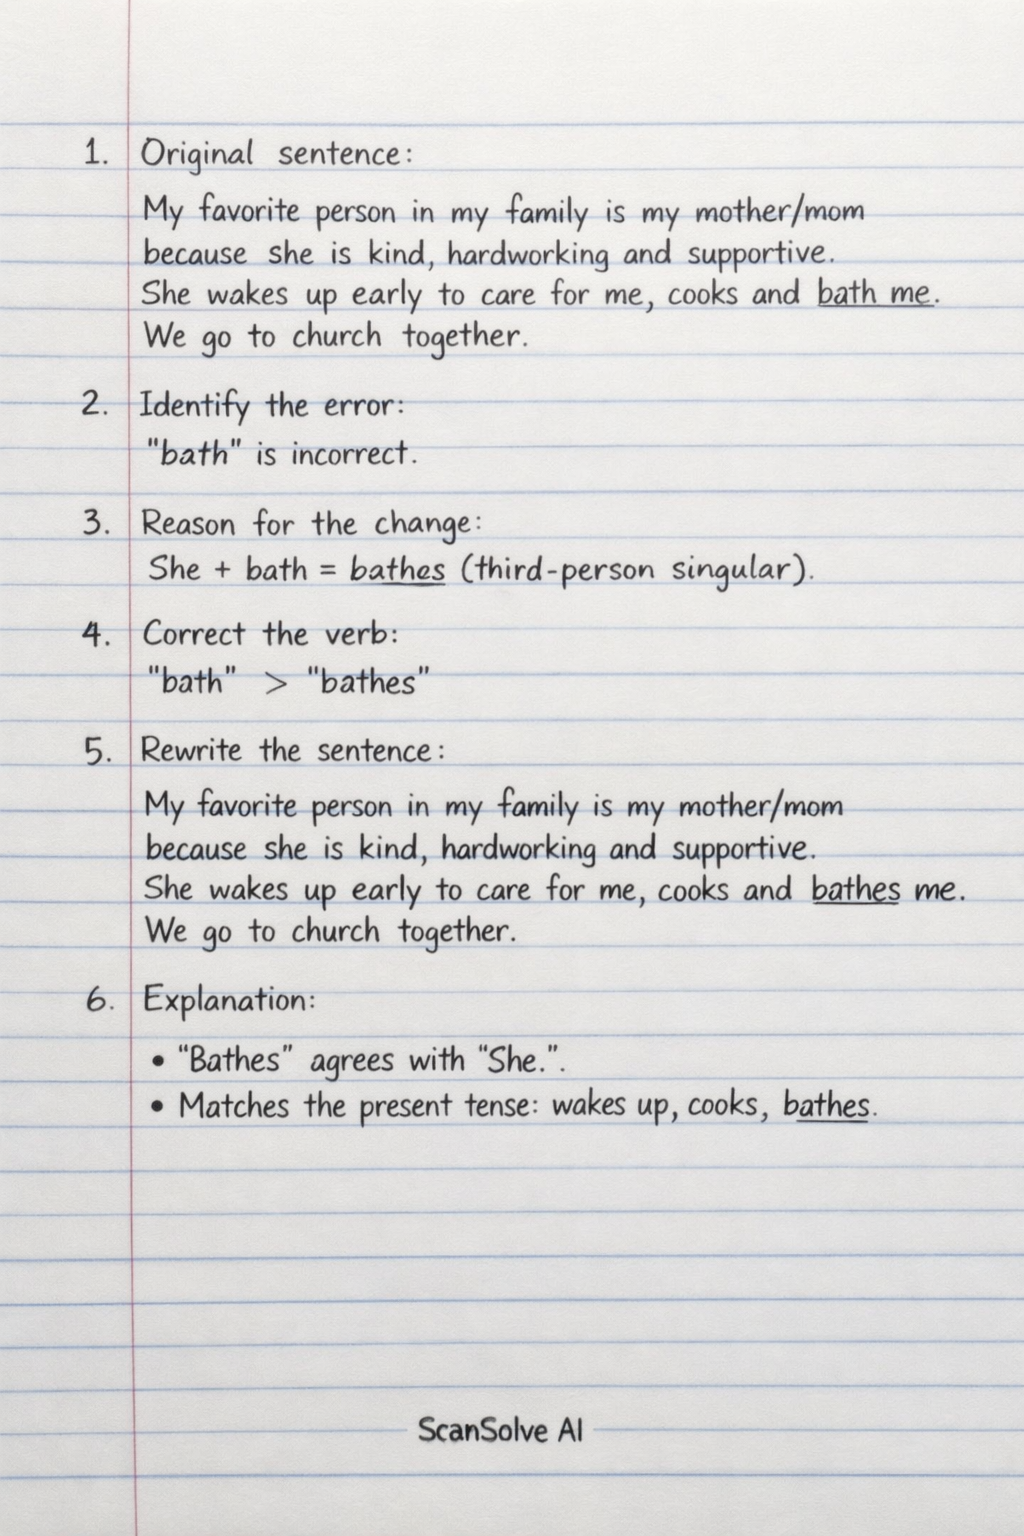 1. Original sentence:
My favorite person in my family is my mother/mom
because she is kind, hardworking and supportive.
She wakes up early to care for me, cooks and bath me.
We go to church together.
2. Identify the error:
"bath" is incorrect.
3. Reason for the change:
She + bath = bathes (third-person singular).
4. Correct the verb:
"bath" > "bathes"
5. Rewrite the sentence:
My favorite person in my family is my mother/mom
because she is kind, hardworking and supportive.
She wakes up early to care for me, cooks and bathes me.
We go to church together.
6. Explanation:
• "Bathes" agrees with "She.".
• Matches the present tense: wakes up, cooks, bathes.
ScanSolve AI